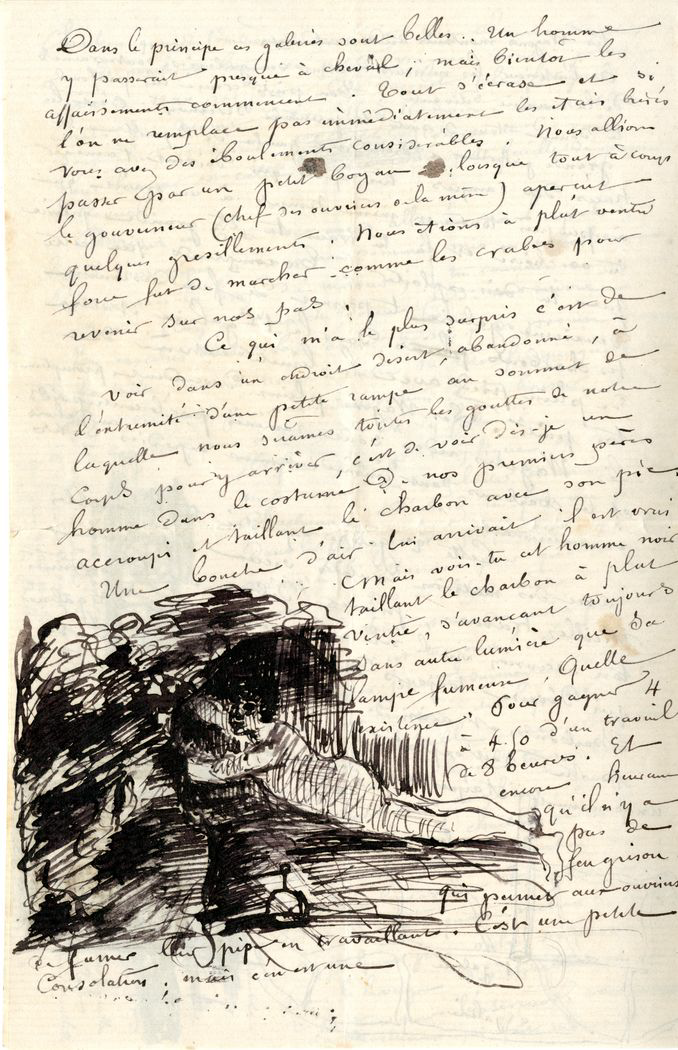 Dans le principe ces galeries sont belles.. Un homme
y passerait presque à cheval ; mais bientôt les
affaissements commencent. Tout s'écrase et si
l'on ne remplace pas immédiatement les étais brisés
vous avez des éboulements considérables. Nous allions
passer par un petit boyau lorsque tout à coup
le gouverneur (chef des ouvriers de la mine) aperçut
quelques gresillements. Nous étions à plat ventre
force fut de marcher comme les crabes pour
revenir sur nos pas
Ce qui m'a le plus surpris c'est de
voir, dans un endroit désert, abandonné, à
l'extremité d'une petite rampe au sommet de
laquelle nous suâmes toutes les gouttes de notre
corps pour y arriver, c'est de voir dis-je un
homme dans le costume de nos premiers pères
accroupi et taillant le charbon avec son pic.
Une bouche d'air lui arrivait il est vrai
Mais vois-tu cet homme noir
taillant le charbon à plat
ventre, s'avançant toujours
sans autre lumière que sa
lampe fumeuse. Quelle
existence. Pour gagner 4
à 4.50 d'un travail
de 8 heures. Et
encore heureux
qu'il n'y a
pas de
feu grisou
qui permet aux ouvriers
de fumer leur pipe en travaillant. C'est une petite
Consolation. mais c'en est une